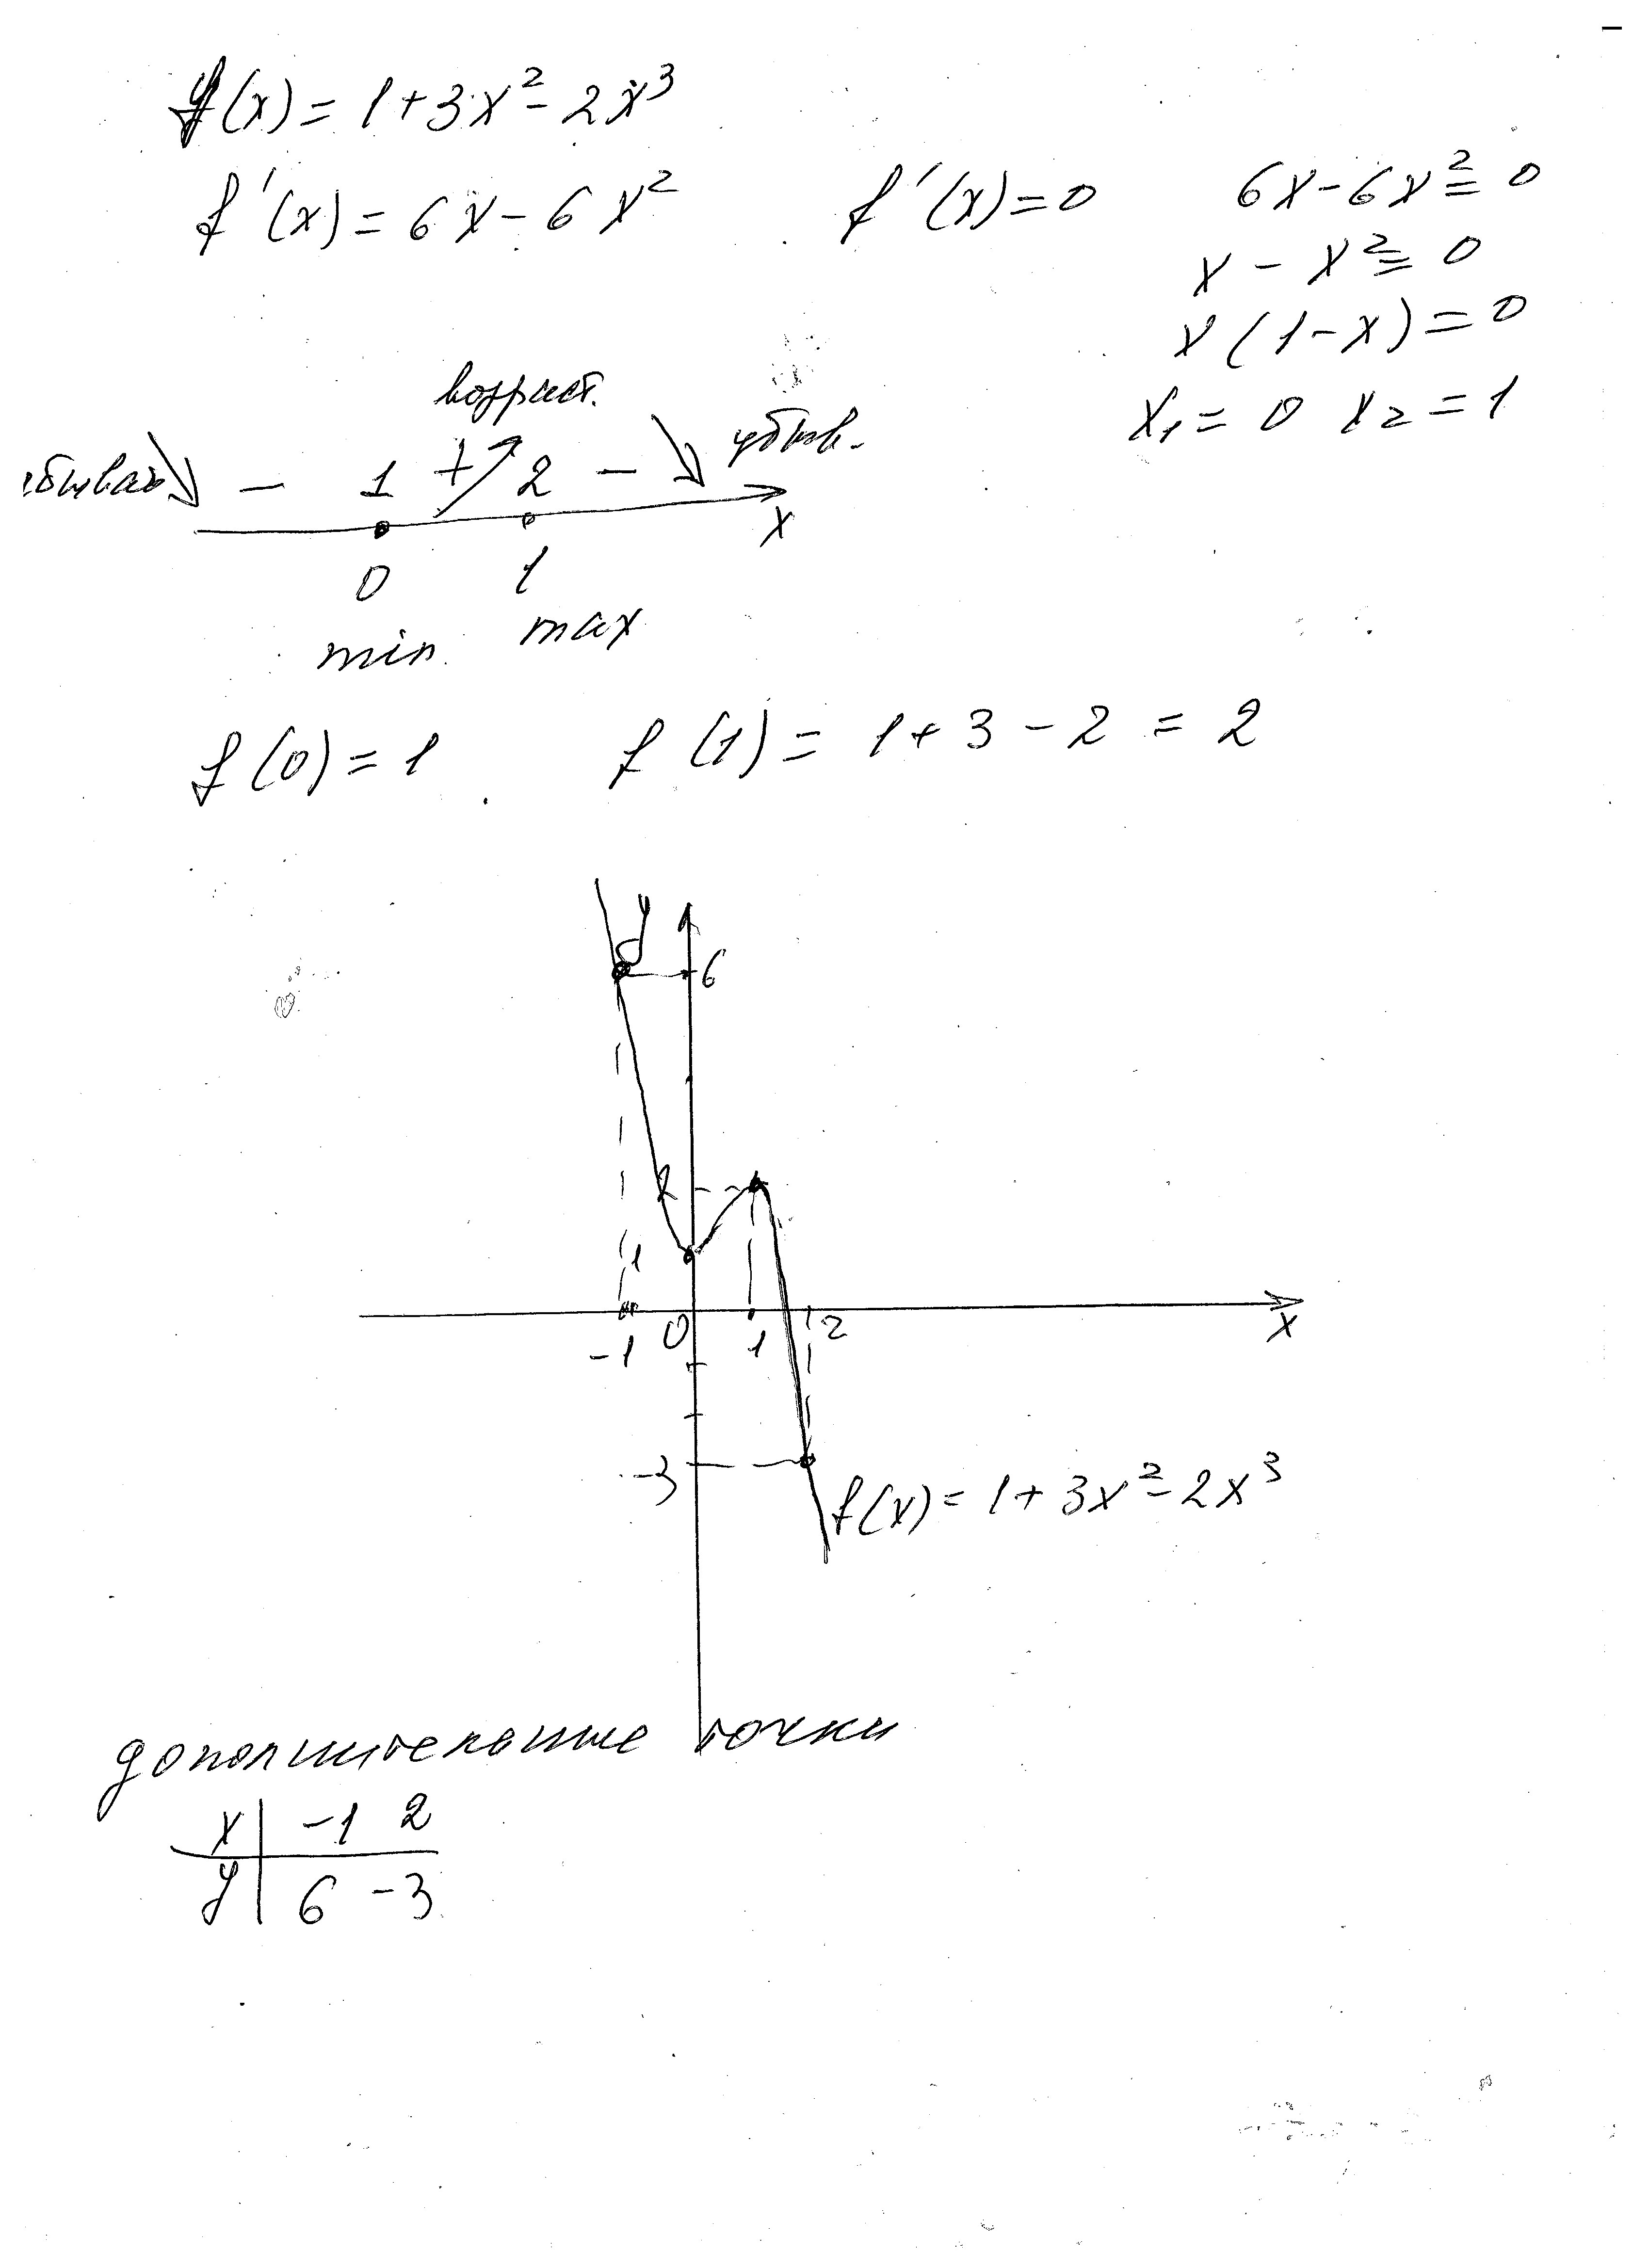 f(x) = 1+3x² - 2x³
f'(x) = 6x - 6x²
f'(x) = 0
6x - 6x² = 0
x - x² = 0
x(1-x) = 0
x₁ = 0 x₂ = 1
возраст.
убыв.
- 1 + 2 -
x
0 1
min max
f(0) = 1 f(1) = 1+3-2 = 2
y
6
2
1
-1 0 1 2 x
-3
f(x) = 1+3x² - 2x³
дополнительные точки
x | -1 2
y | 6 -3